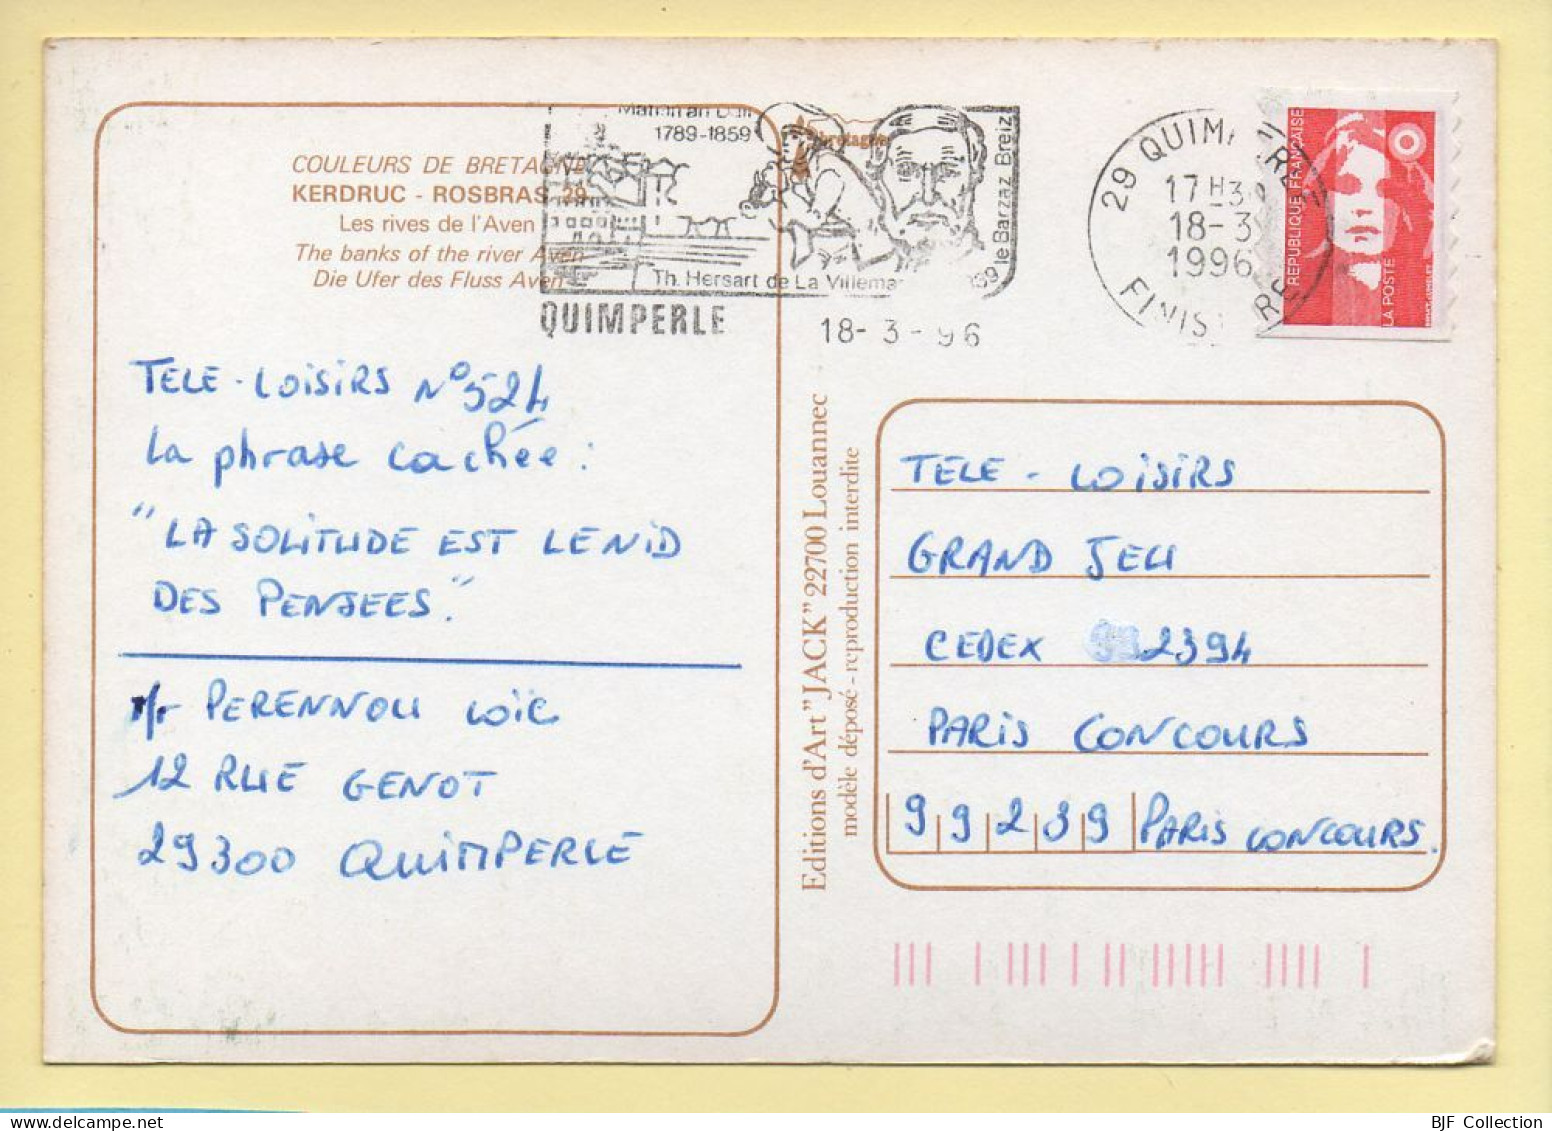 COULEURS DE BRETAGNE
KERDRUC - ROSBRAS 29
Les rives de l'Aven
The banks of the river Aven
Die Ufer des Fluss Aven
1789-1859
bretagne
le Barzaz Breiz
Th. Hersart de La
QUIMPERLE
18-3-96
29 QUIMPERLE
17H3
18-3
1996
FINISTERE
REPUBLIQUE FRANÇAISE
LA POSTE
TELE-LOISIRS N°524
La phrase cachée :
"LA SOLITUDE EST LE NID
DES PENSEES."
PERENNOU LOÏC
12 RUE GENOT
29300 QUIMPERLE
Editions d'Art "JACK" 22700 Louannec
modèle déposé - reproduction interdite
TELE - LOISIRS
GRAND JEU
CEDEX 2394
PARIS CONCOURS
99239 PARIS CONCOURS.
BJF Collection